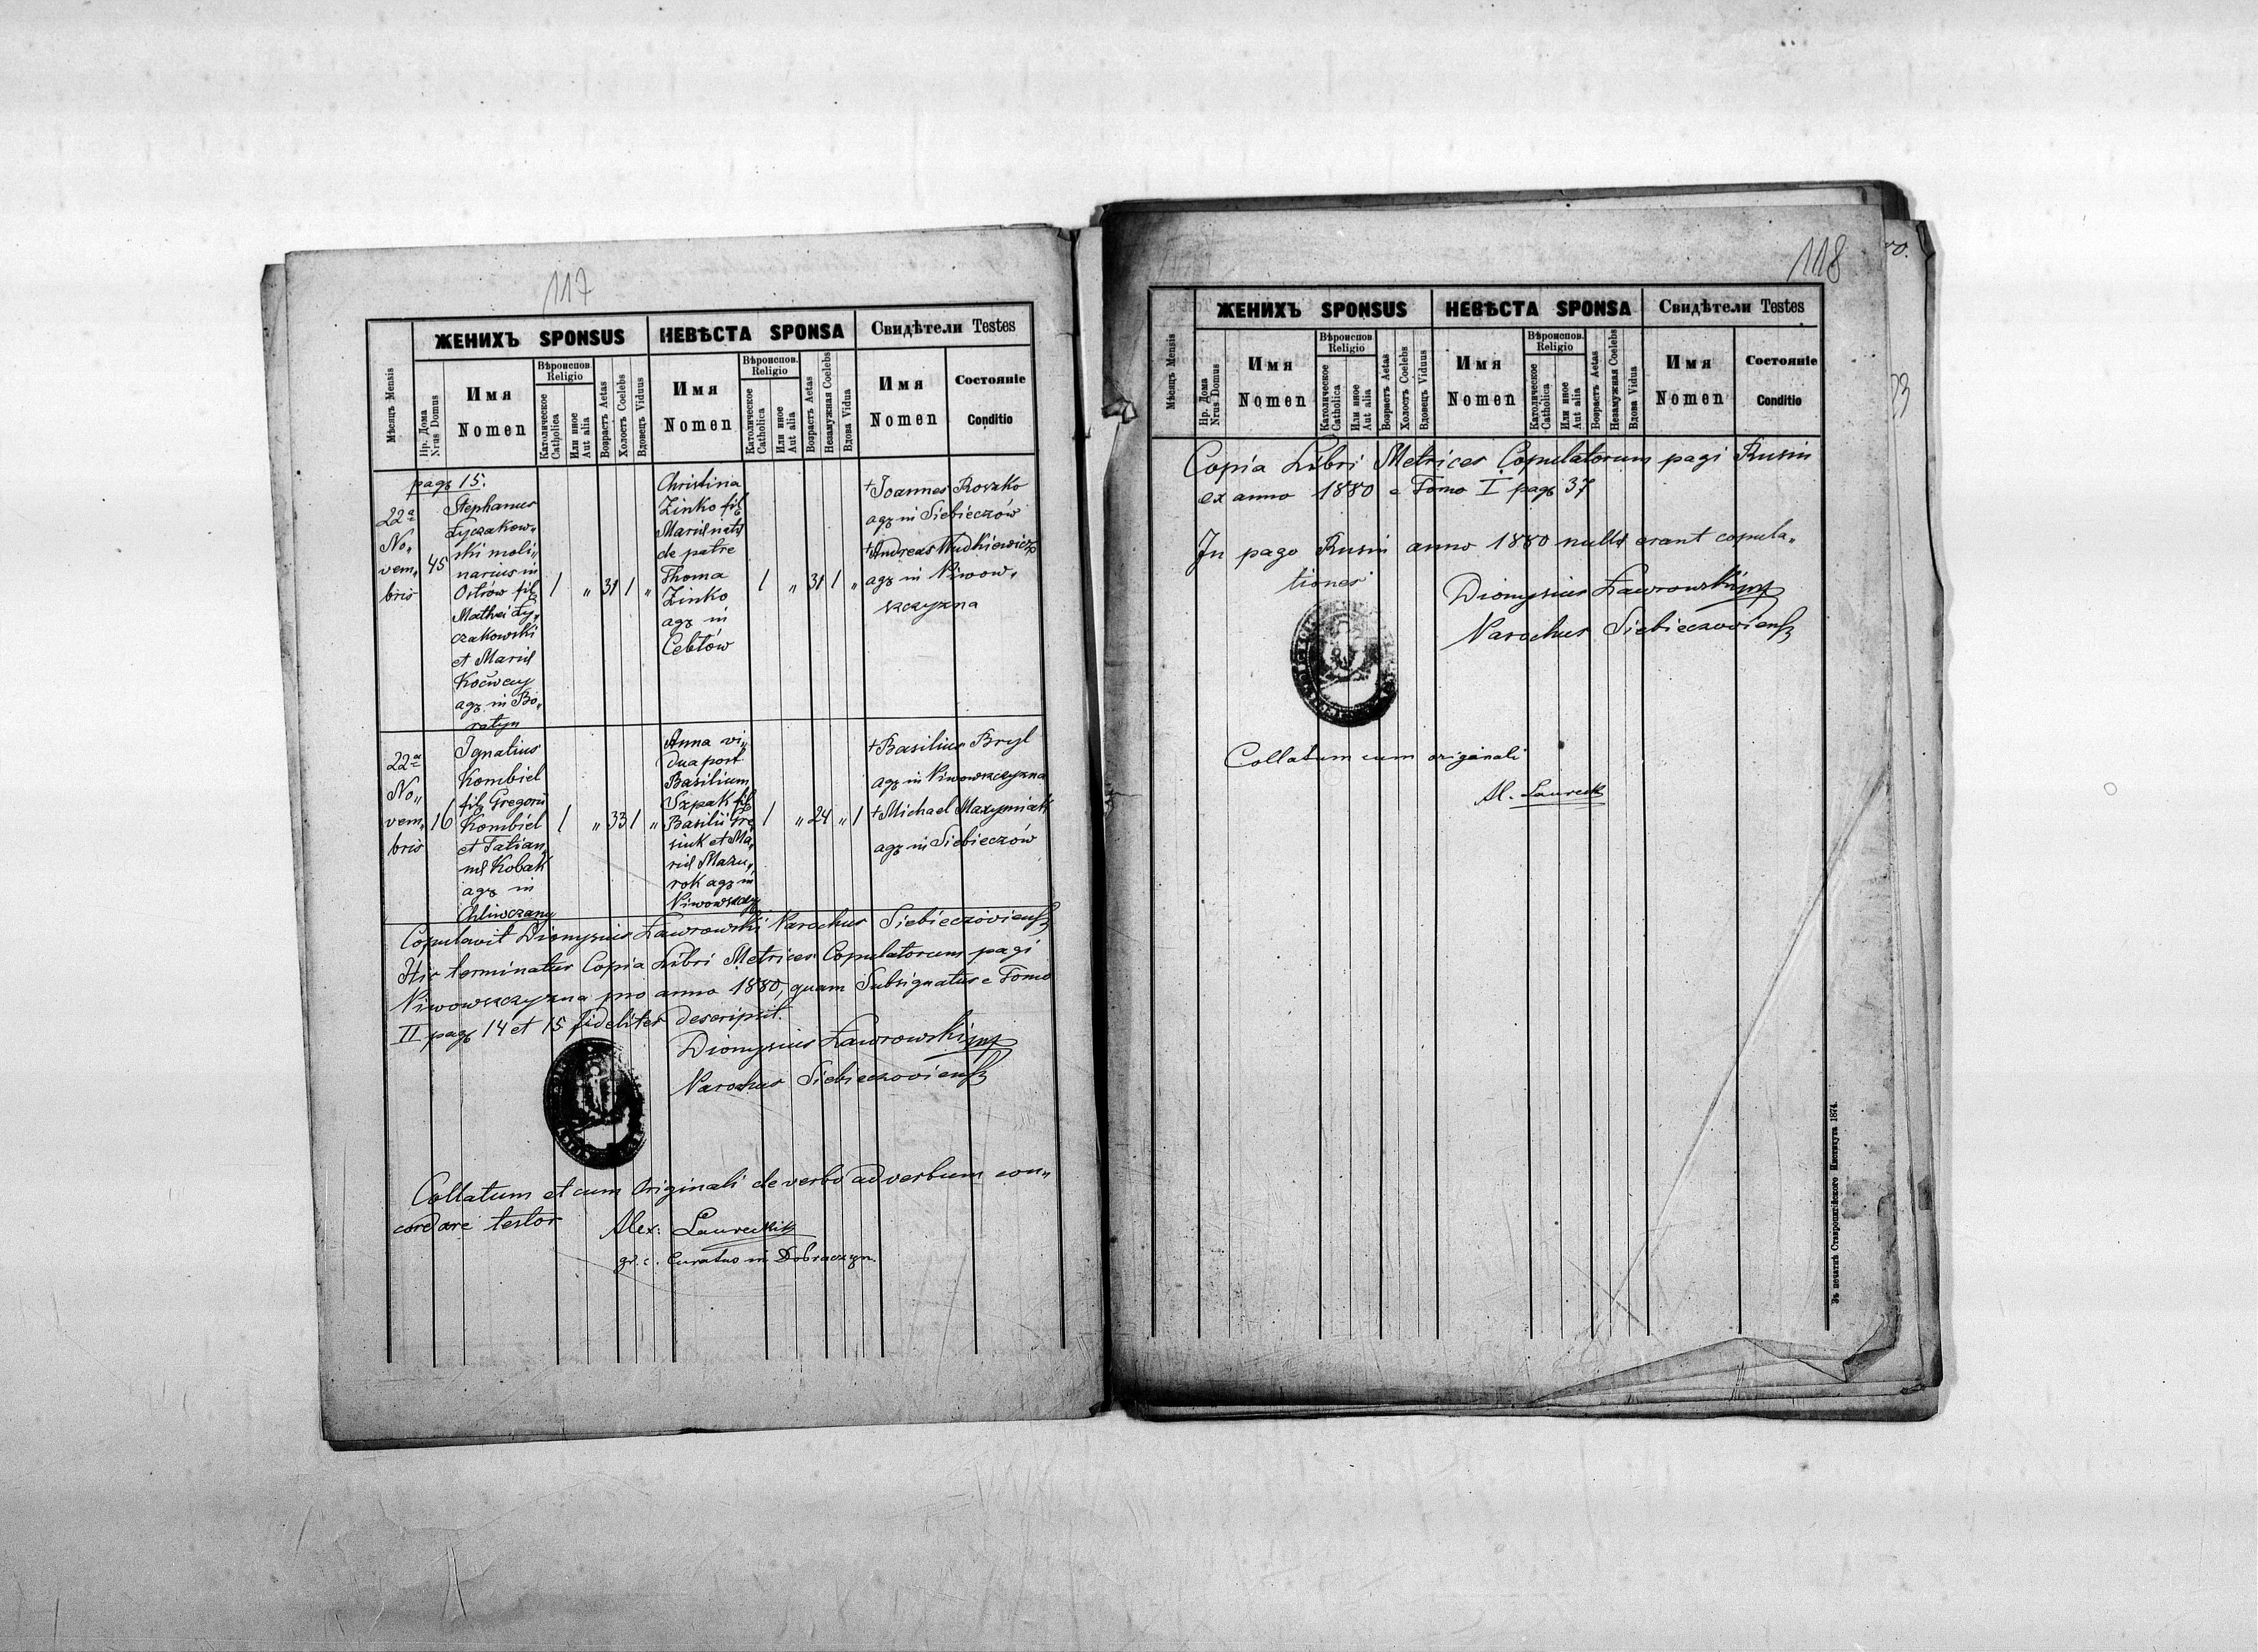 117
Мѣсяцъ Mensis
ЖЕНИХЪ SPONSUS
НЕВѢСТА SPONSA
Свидѣтели Testes
Нр. Дома
Nrus Domus
Имя
Nomen
Вѣроиспов.
Religio
Католическое
Catholica
Или иное
Aut alia
Возрастъ Aetas
Холостъ Coelebs
Вдовецъ Viduus
Имя
Nomen
Вѣроиспов.
Religio
Католическое
Catholica
Или иное
Aut alia
Возрастъ Aetas
Незамужная Coelebs
Вдова Vidua
Имя
Nomen
Состояніе
Conditio
pag 15.
22a
No„
vem„
bris
45
Stephanus
Łyczakow„
ski moli„
narius in
Ostrów fil
Mathei Ły„
czakowski
et Mariæ
agr in Bo„
ratyn
1 „ 31 1 „
Christina
Zinko fil
Mariæ nata
de patre
Thoma
Zinko
agr in
Cebłów
1 „ 31 1 „
+Joannes Roszko
agr in Siebieczów
+Andreas Wudkiewicz
agr in Piwow„
szczyzna
22a
No„
vem„
bris
16
Ignatius
Kombiel
fil Gregorii
Kombiel
et Tatian„
næ Kobak
agr in
Chliwczany
1 „ 33 1 „
Anna vi„
dua post
Basilium
Szpak fil
Basilii Hre
siuk et Ma„
riæ Mazu„
rok agr in
Piwowszczy
1 „ 24 „ 1
+Basilius Bryl
agr in Piwowszczyzna
+Michael Maxymiak
agr in Siebieczów
Copulavit Dionysius Ławrowski Parochus Siebieczoviens
Hic terminatur Copia Libri Metrices Copulatorum pagi
Piwowszczyzna pro anno 1880, quam Subsignatus e Tomo
II pag 14 et 15 fideliter descripsit.
Dionysius Ławrowski mp
Parochus Siebieczoviens
Collatum et cum Originali de verbo ad verbum con„
cordare testor
Alex:
gr. c. Curatus in Dobraczyn.
118
Мѣсяцъ Mensis
ЖЕНИХЪ SPONSUS
НЕВѢСТА SPONSA
Свидѣтели Testes
Нр. Дома
Nrus Domus
Имя
Nomen
Вѣроиспов.
Religio
Католическое
Catholica
Или иное
Aut alia
Возрастъ Aetas
Холостъ Coelebs
Вдовецъ Viduus
Имя
Nomen
Вѣроиспов.
Religio
Католическое
Catholica
Или иное
Aut alia
Возрастъ Aetas
Незамужная Coelebs
Вдова Vidua
Имя
Nomen
Состояніе
Conditio
Copia Libri Metrices Copulatorum pagi Rusin
ex anno 1880 e Tomo I pag 37
In pago Rusin anno 1880 nullæ erant copula„
tiones
Dionysius Ławrowski mp
Parochus Siebieczoviens
Collatum cum originali
Al.
Въ печатнѣ Ставропигійского Института 1874.